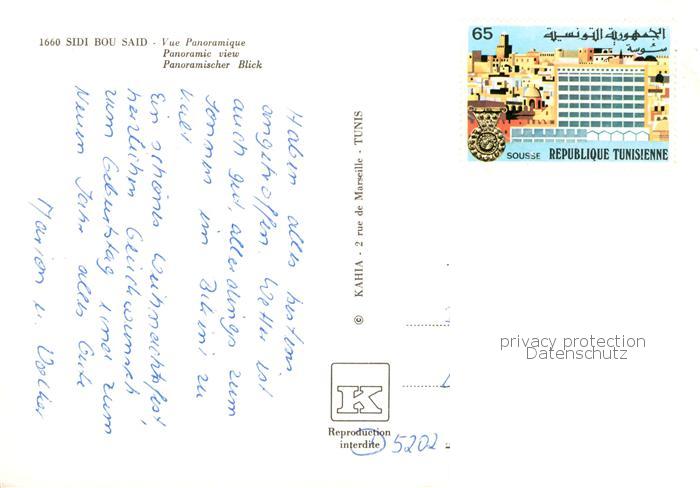 1660 SIDI BOU SAID - Vue Panoramique
Panoramic view
Panoramischer Blick
Haben alles prima
angetroffen. Wetter ist
auch gut, allerdings zum
Sonnen im Bikini zu
kalt
Ein schönes Weihnachtsfest,
herzlichen Glückwunsch
zum Geburtstag und zum
Neuen Jahr alles Gute
Marion u.
© KAHIA - 2 rue de Marseille - TUNIS
K
Reproduction
interdite
5202
65
الجمهورية التونسية
سوسة
SOUSSE RÉPUBLIQUE TUNISIENNE
privacy protection
Datenschutz